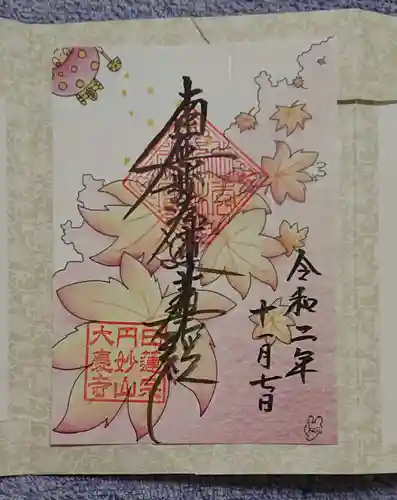 南無妙法蓮華経
令和二年
十一月七日
日蓮宗
円妙山
大慶寺